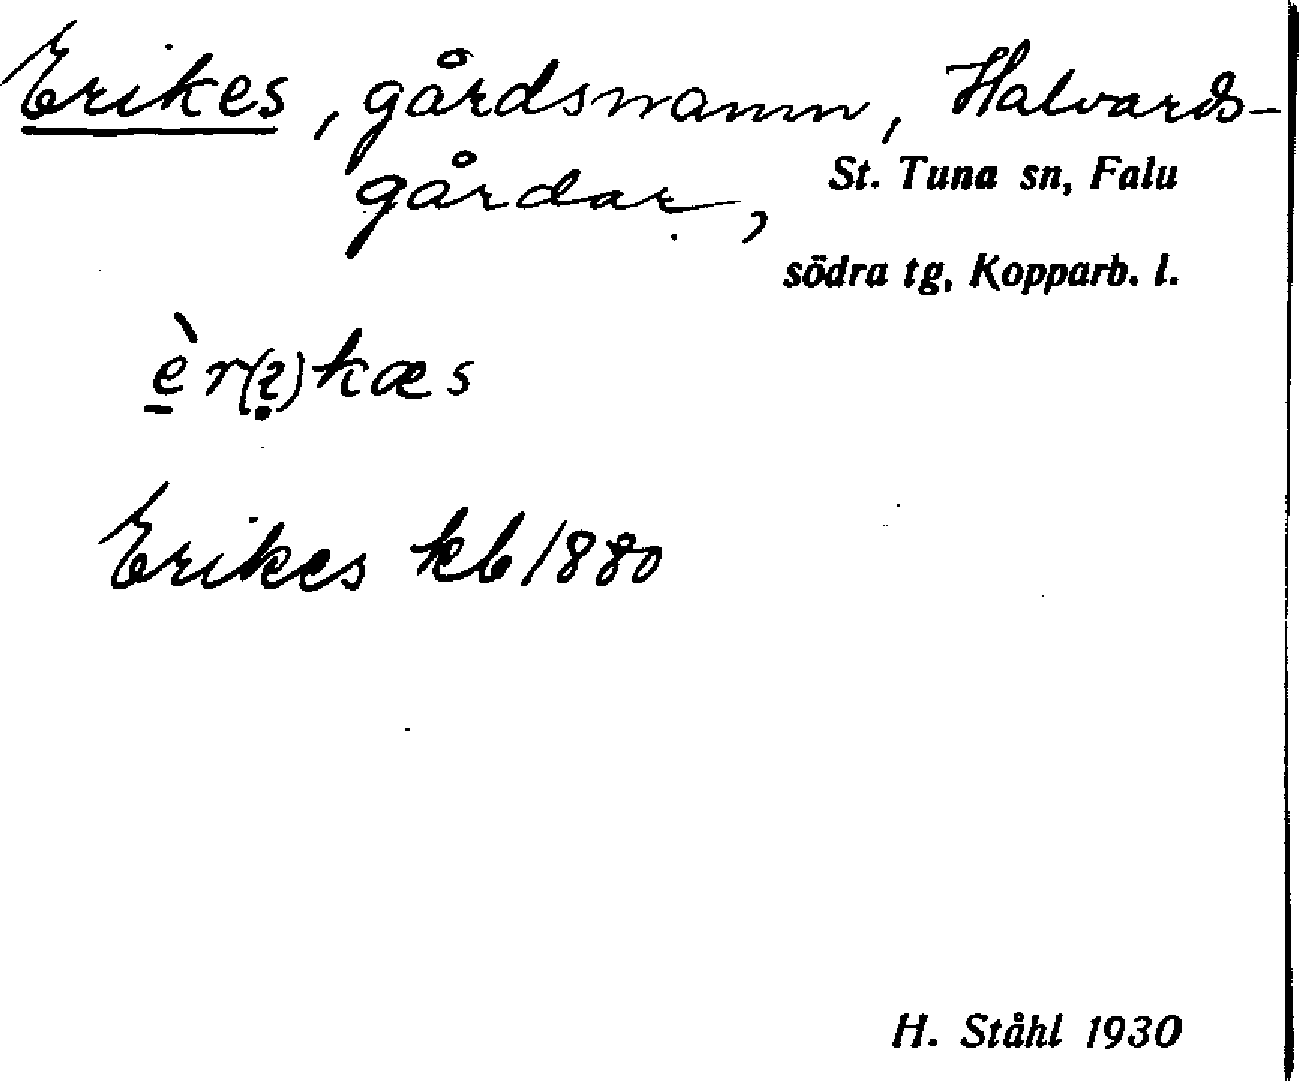 Erikes, gårdsnamn, Halvards-
gårdar, St. Tuna sn, Falu
södra tg, Kopparb. l.
Erikes kb 1880
H. Ståhl 1930